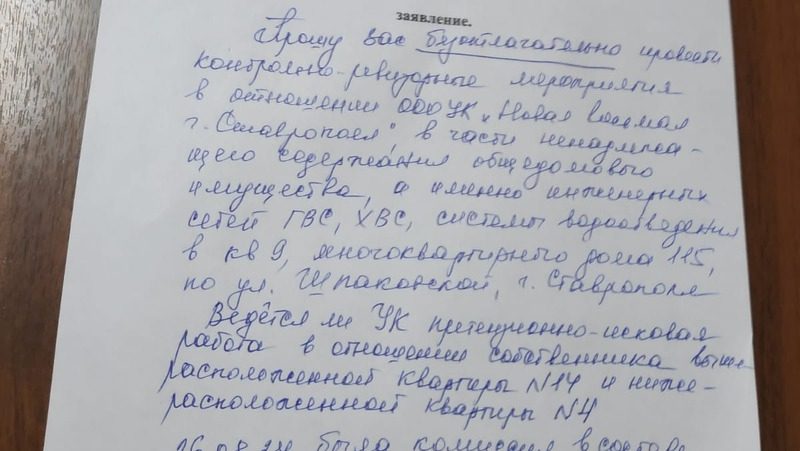 заявление.
Прошу вас безотлагательно провести
контрольно-ревизорные мероприятия
в отношении ООО УК "Новая
г. Ставрополя", в части ненадлежа-
щего содержания общедомового
имущества, а именно инженерных
сетей ГВС, ХВС, системы водоотведения
в кв 9, многоквартирного дома 115,
по ул. Шпаковской, г. Ставрополя
Ведётся ли УК претензионно-исковая
работа в отношении собственника выше-
расположенной квартиры N14 и ниже-
расположенной квартиры N4
была комиссия в составе